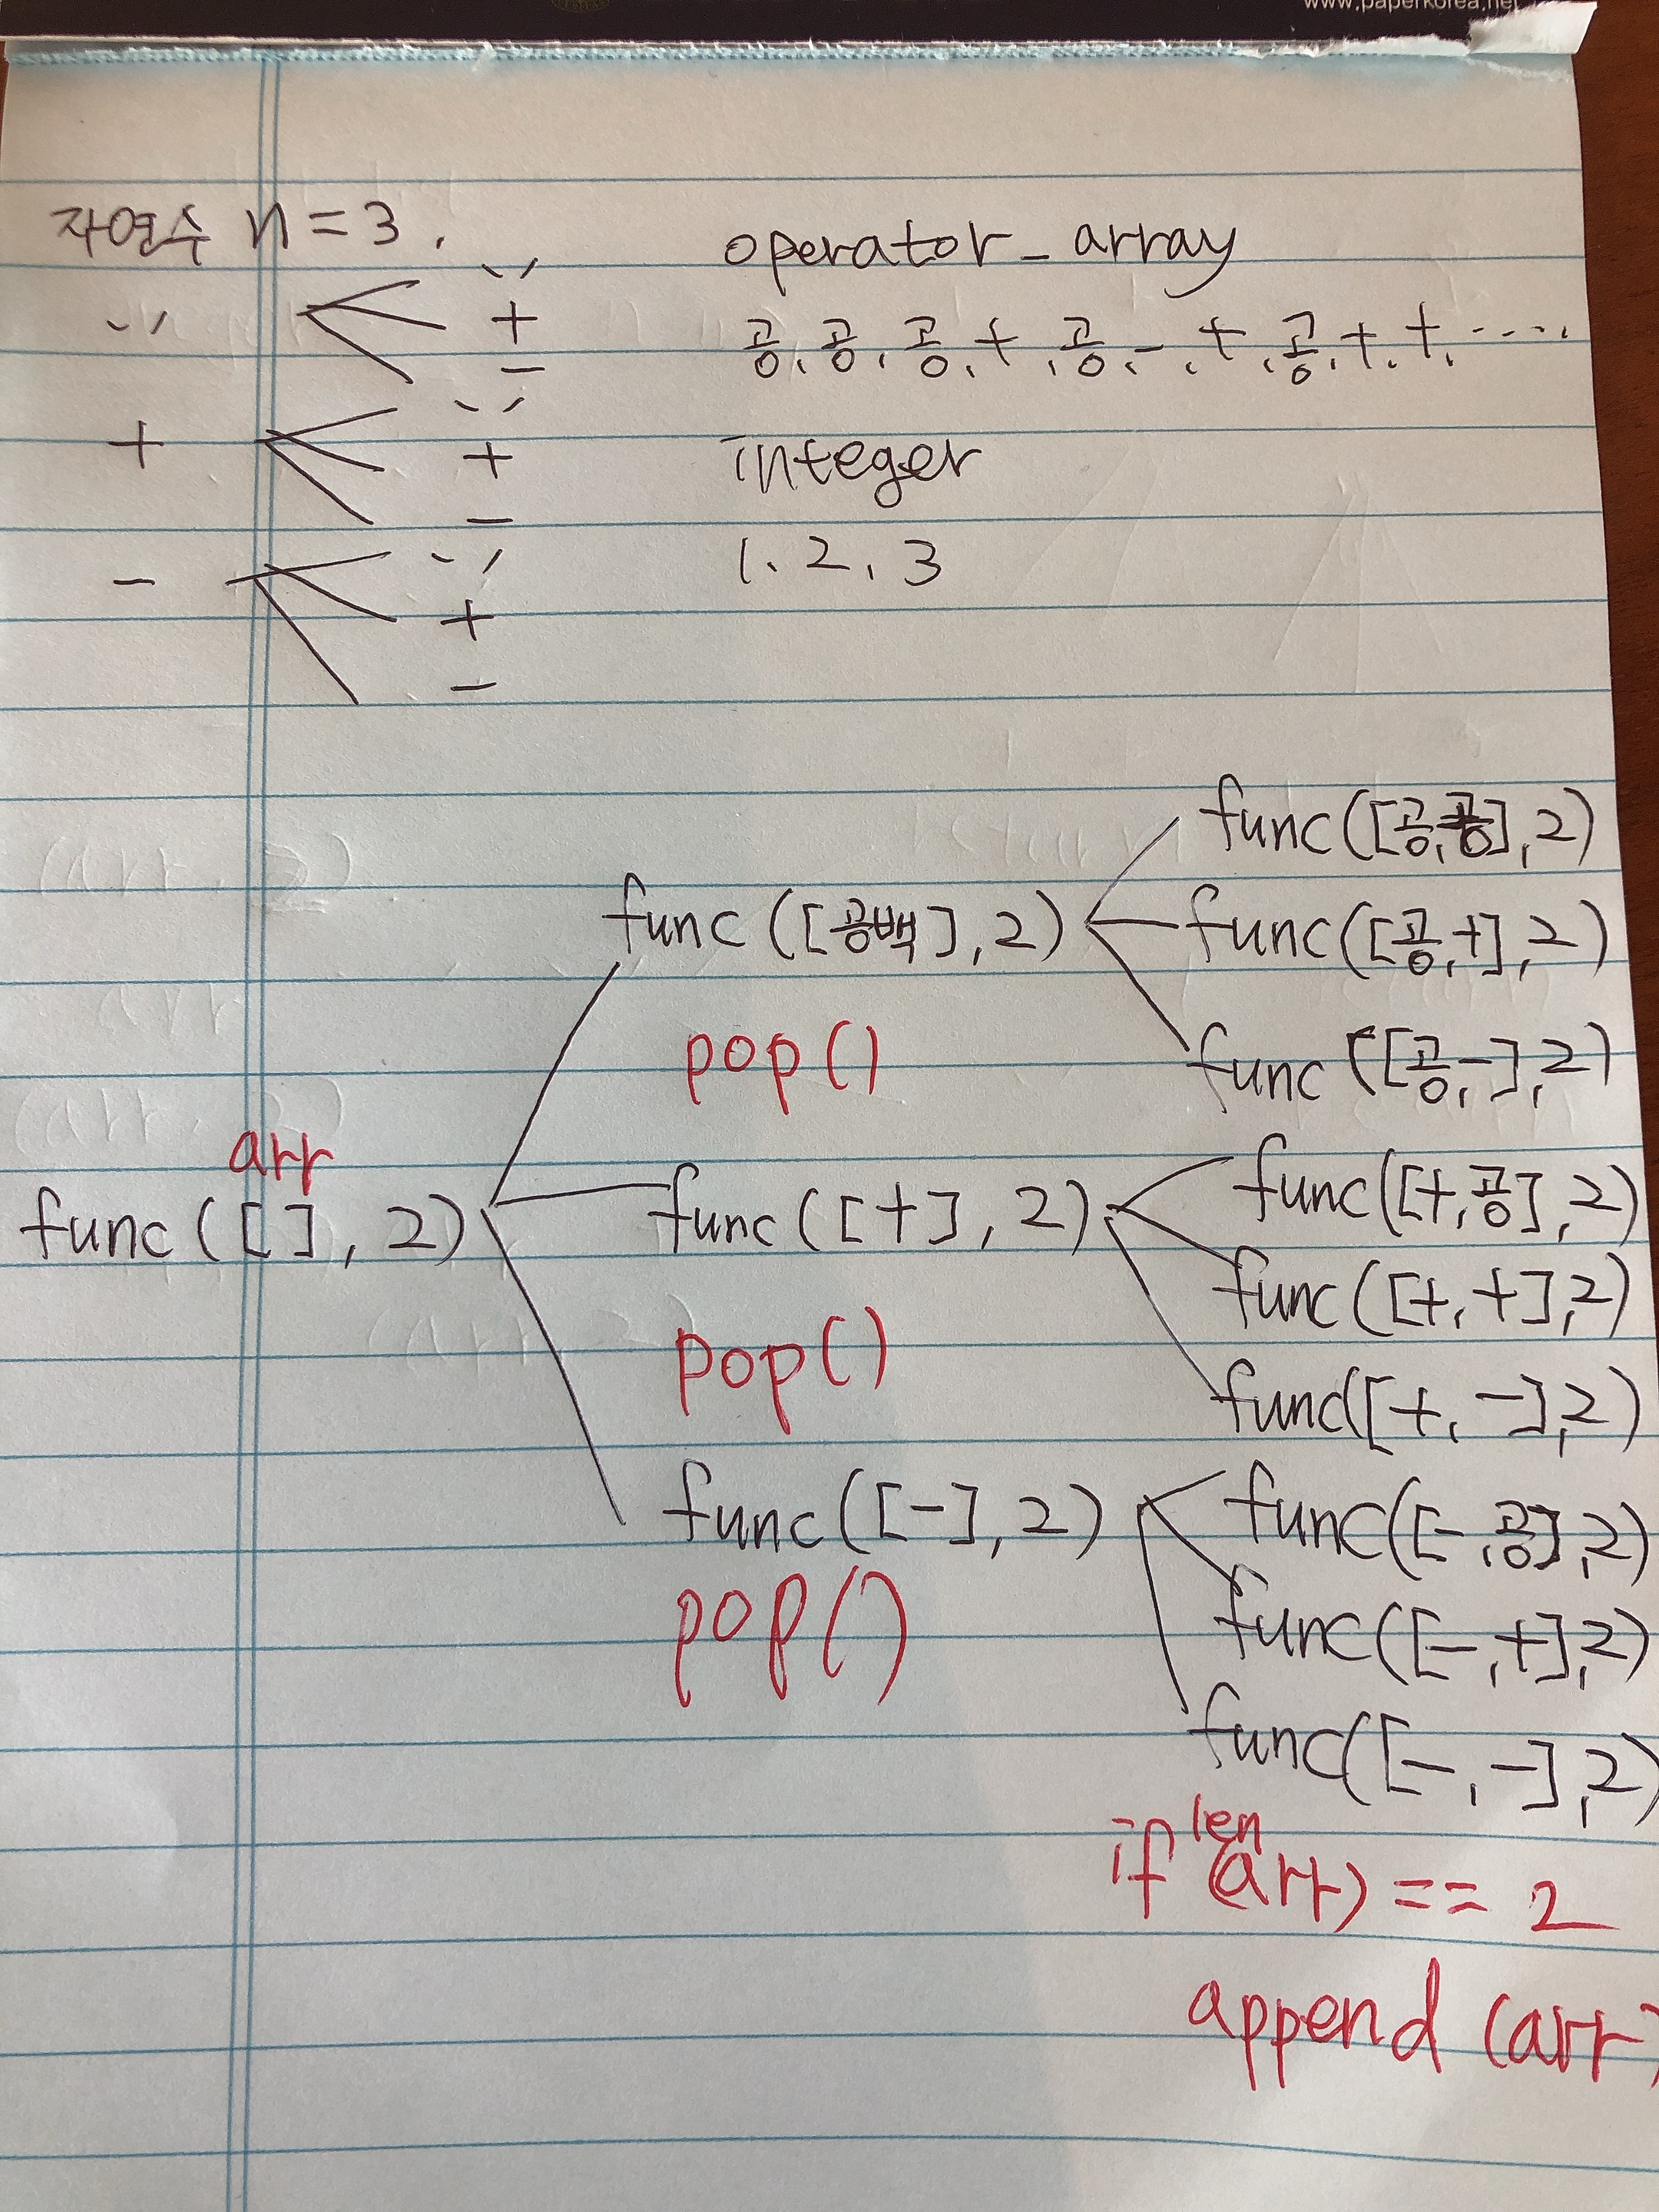 www.paperkorea.net
자연수 n = 3.
' ' ' '
+
-
+ ' '
+
-
- ' '
+
-
operator_array
공, 공, 공, +, 공, -, +, 공, +, +, ....
integer
1, 2, 3
arr
func ([ ], 2)
func ([공백], 2)
pop()
func ([+], 2)
pop()
func ([-], 2)
pop()
func([공,공],2)
func([공,+],2)
func([공,-],2)
func([+,공],2)
func([+,+],2)
func([+,-],2)
func([-,공],2)
func([-,+],2)
func([-,-],2)
if len(arr) == 2
append (arr)